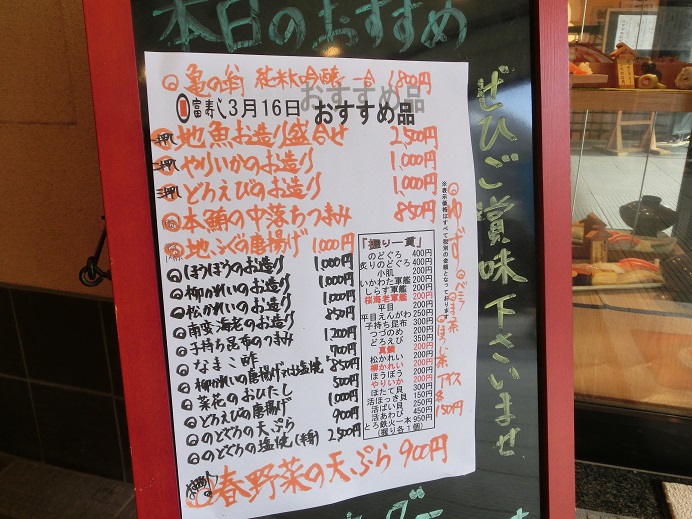 本日のおすすめ
◎亀の翁 純米大吟醸 一合 1,800円
富寿し 3月16日 おすすめ品
一押し 地魚お造り盛合せ 2,500円
二押し やりいかのお造り 1,000円
三押し どろえびのお造り 1,000円
◎本鮪の中落ちつまみ 850円
◎地ふぐの唐揚げ 1,000円
◎ほうぼうのお造り 1,000円
◎柳かれいのお造り 1,000円
◎松かれいのお造り 850円
◎南蛮海老のお造り 1,200円
◎子持ち昆布のつまみ 700円
◎なまこ酢 850円
◎柳かれいの唐揚げ又は塩焼
◎菜花のおひたし 500円
◎どろえびの唐揚げ 1,000円
◎のどぐろの天ぷら 900円
◎のどぐろの塩焼(半身) 2,500円
春野菜の天ぷら 900円
「握り一貫」
のどぐろ 400円
炙りのどぐろ 400円
小肌 200円
いかわた軍艦 200円
しらす軍艦 200円
桜海老軍艦 200円
平目 200円
平目えんがわ 250円
子持ち昆布 300円
つづのめ 200円
どろえび 350円
真鯛 200円
松かれい 200円
柳かれい 200円
ほうぼう 200円
やりいか 200円
ほたて貝 300円
活ほっき貝 150円
活ばい貝 250円
活あわび 450円
とろ鉄火一本 950円
(握り各1個)
※表示価格はすべて税別の金額となっております
◎ゆず
◎バニラ
◎抹茶
◎ほうじ茶
アイス
各150円
ぜひご賞味下さいませ